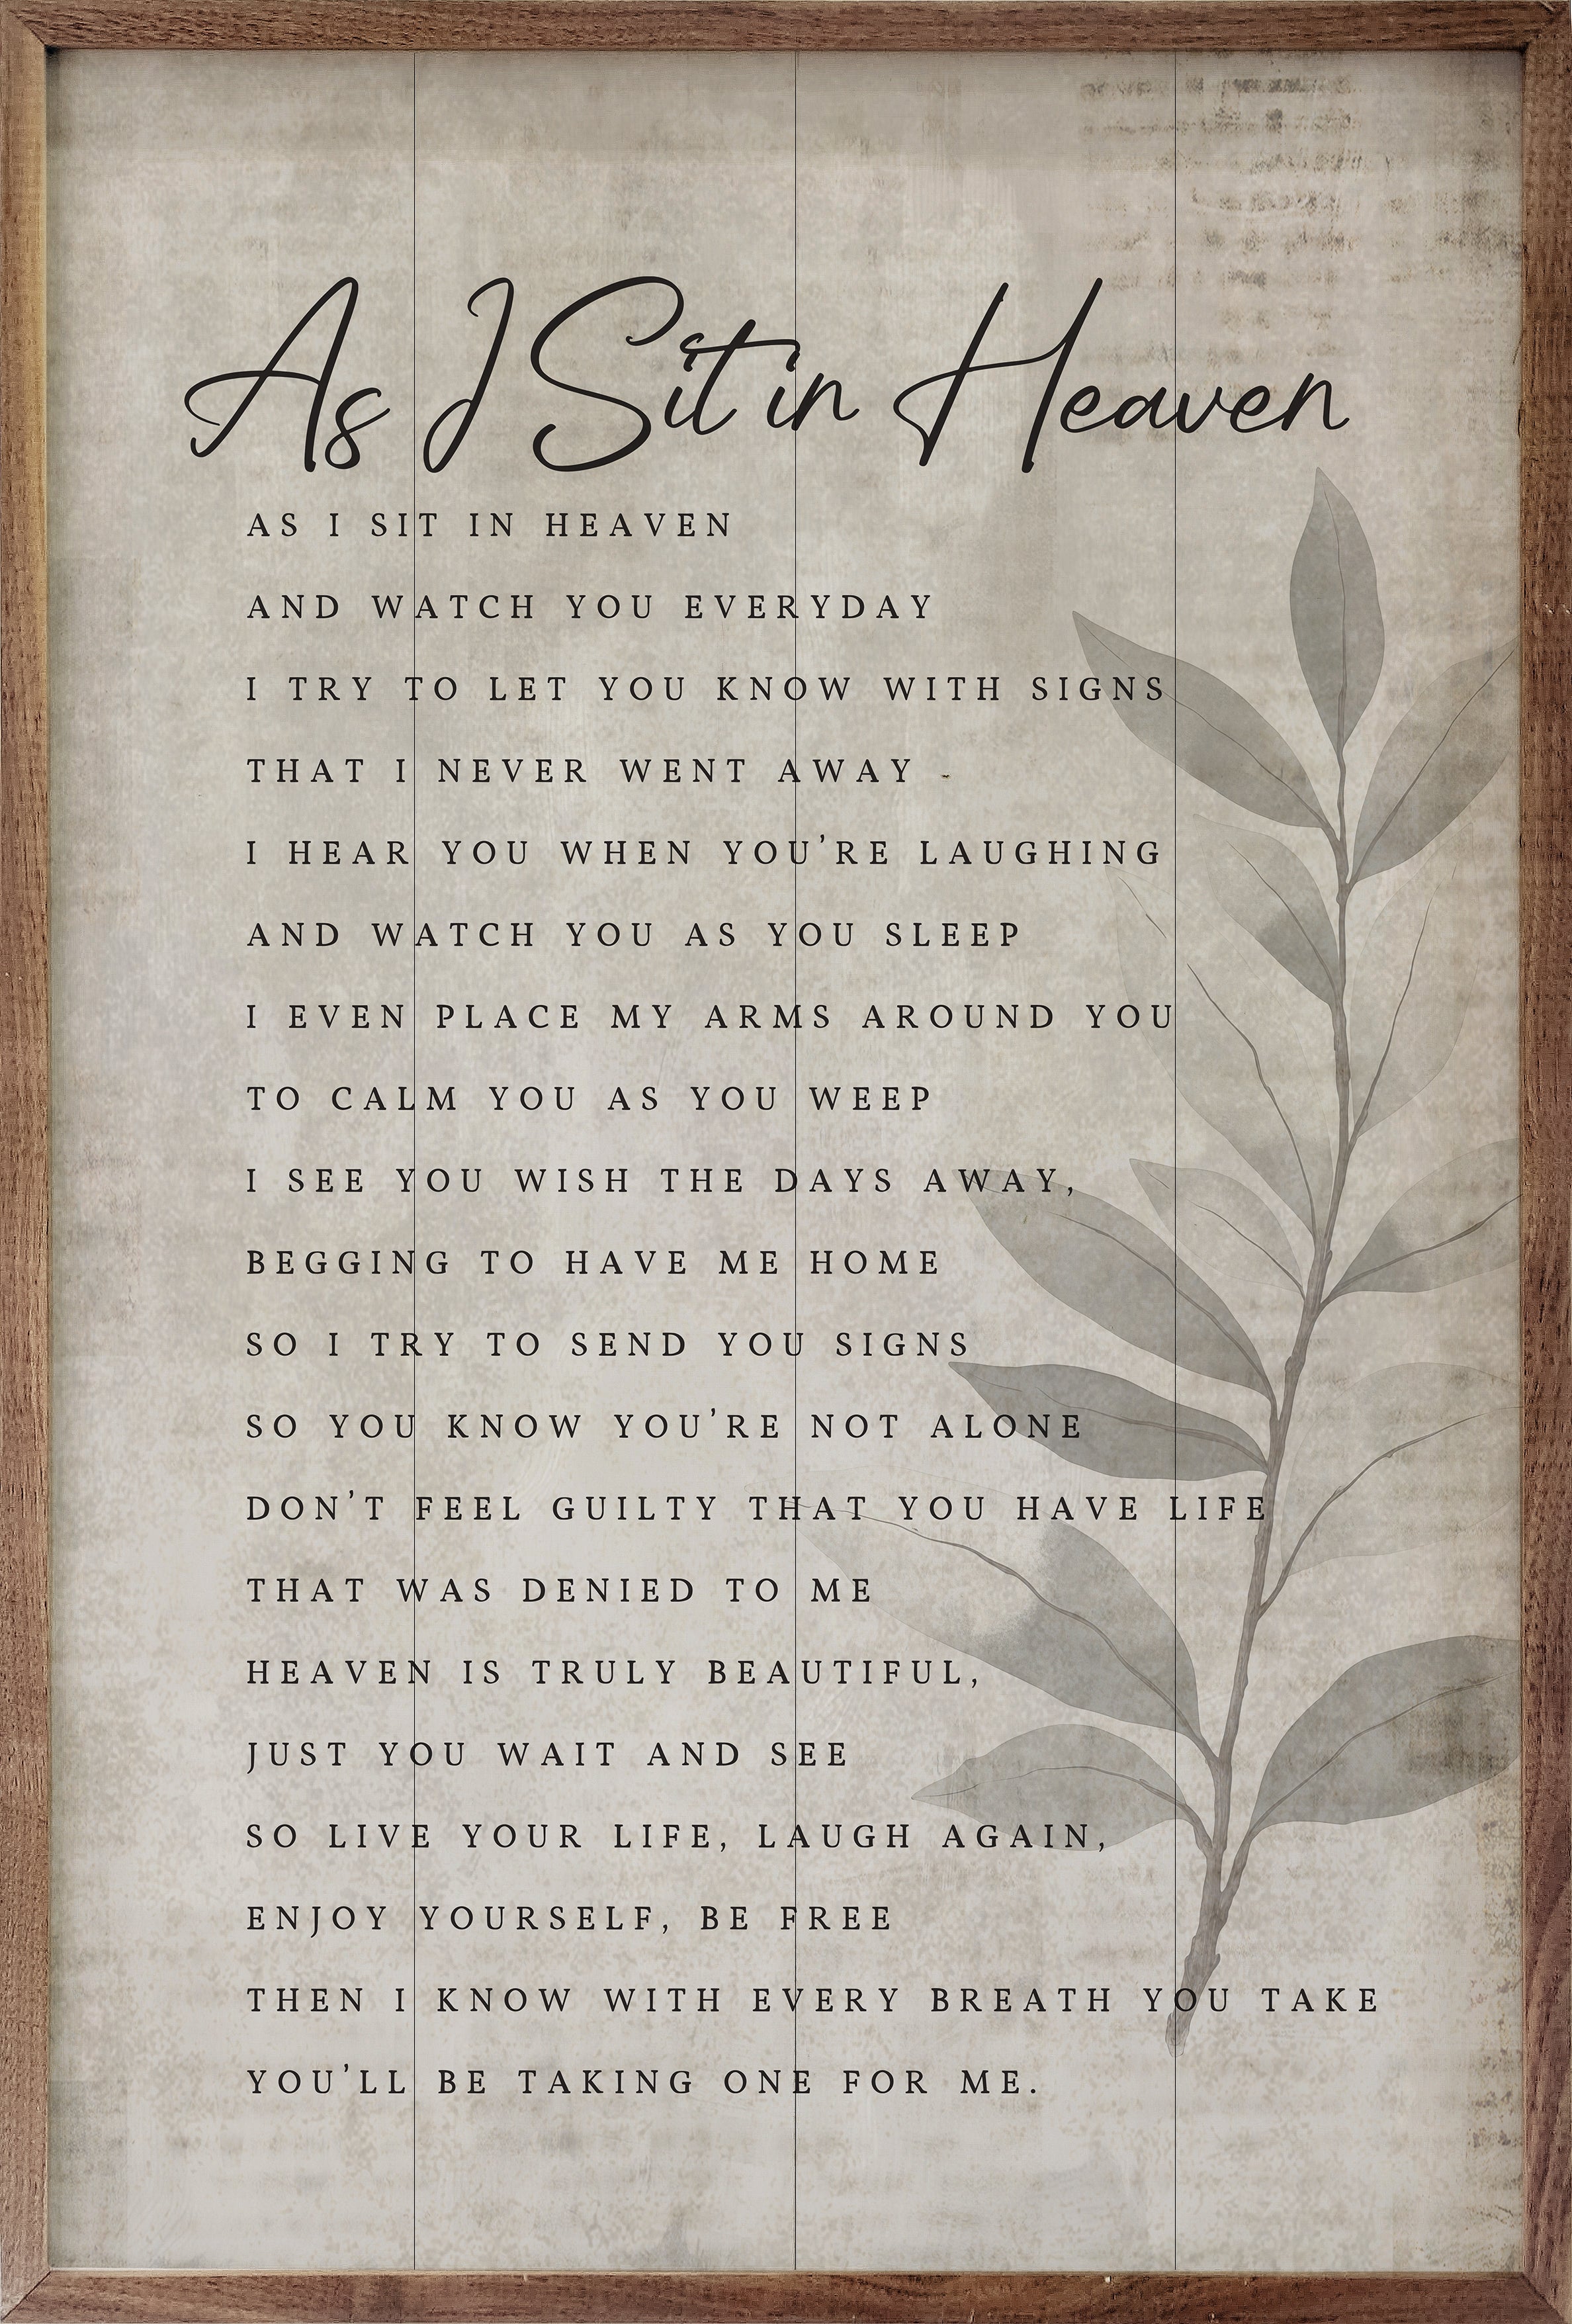 As I Sit in Heaven
AS I SIT IN HEAVEN
AND WATCH YOU EVERYDAY
I TRY TO LET YOU KNOW WITH SIGNS
THAT I NEVER WENT AWAY
I HEAR YOU WHEN YOU'RE LAUGHING
AND WATCH YOU AS YOU SLEEP
I EVEN PLACE MY ARMS AROUND YOU
TO CALM YOU AS YOU WEEP
I SEE YOU WISH THE DAYS AWAY,
BEGGING TO HAVE ME HOME
SO I TRY TO SEND YOU SIGNS
SO YOU KNOW YOU'RE NOT ALONE
DON'T FEEL GUILTY THAT YOU HAVE LIFE
THAT WAS DENIED TO ME
HEAVEN IS TRULY BEAUTIFUL,
JUST YOU WAIT AND SEE
SO LIVE YOUR LIFE, LAUGH AGAIN,
ENJOY YOURSELF, BE FREE
THEN I KNOW WITH EVERY BREATH YOU TAKE
YOU'LL BE TAKING ONE FOR ME.